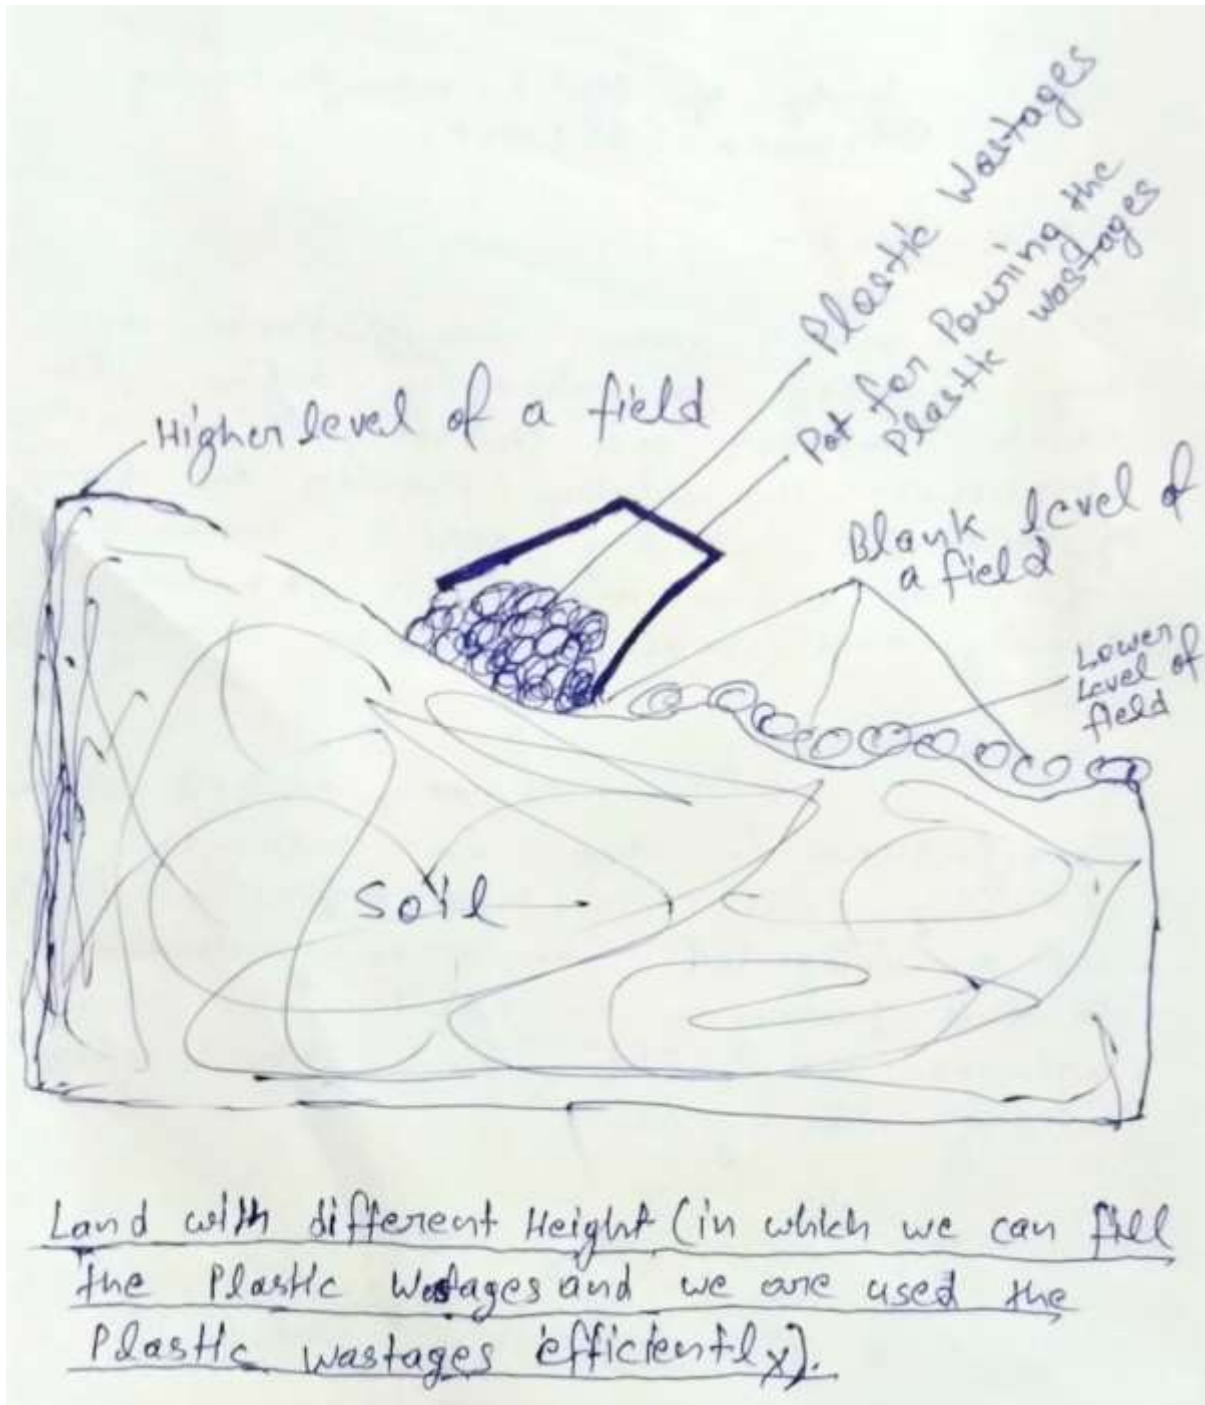 Plastic Wastages
Pot for Pouring the
Plastic wastages
Higher level of a field
Blank level of
a field
Lower
Level of
field
Soil
Land with different Height (in which we can fill
the Plastic Wastages and we are used the
Plastic wastages efficiently).